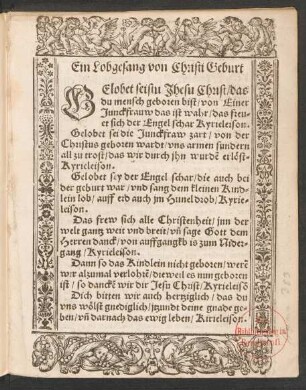 Ein Lobgesang von Christi Geburt
GElobet seistu Jhesu Christ/das
du mensch geboren bist/von Einer
Junckfrauw das ist wahr/das freu-
et sich der Engel schar Kyrieleison.
Gelobet sei die Junckfraw zart/von der
Christus geboren wardt/vns armen sundern
all zu trost/das wir durch jhn wurdē erlöst-
Kyrieleison.
Gelobet sey der Engel schar/die auch bei
der geburt war/vnd sang dem kleinen Kind-
lein lob/auff erd auch jm Himel drob/Kyrie-
leison.
Das frew sich alle Christenheit/jnn der
welt gantz weit vnd breit/vñ sage Gott dem
Herren danck/von auffgangk bis zum Nider-
gang/Kyrieleison.
Dann so das Kindlein nicht geboren/werē
wir alzumal verlohrē/dieweil es nun geboren
ist/so danckē wir dir Jesu Christ/Kyrieleisō
Dich bitten wir auch hertziglich/das du
vns wölst gnediglich/jtzundt deine gnade ge-
ben/vñ darnach das ewig leben/Kirieleison.